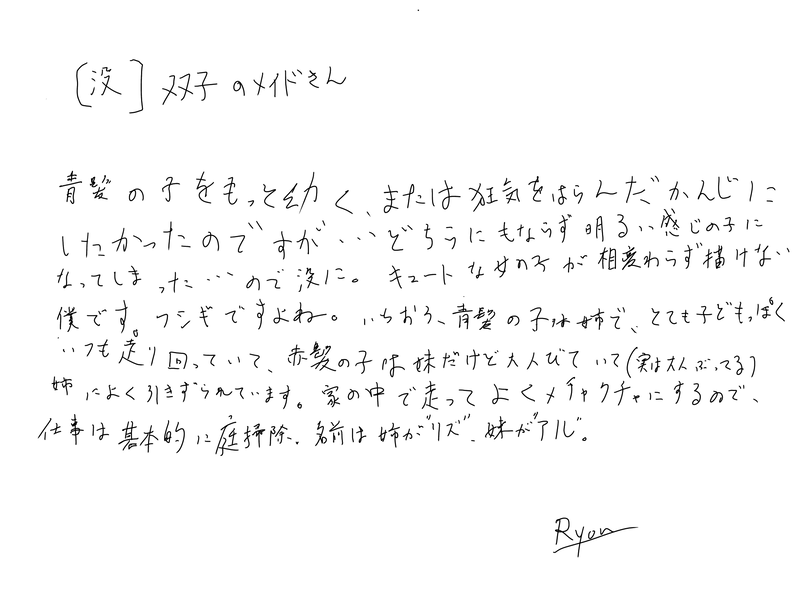 [没] 双子のメイドさん
青髪の子をもっと幼く、または狂気をはらんだかんじに
したかったのですが…どちらにもならず明るい感じの子に
なってしまった…ので没に。キュートな女の子が相変わらず描けない
僕です。フシギですよね。いちおう、青髪の子は姉で、とても子どもっぽく
いつも走り回っていて、赤髪の子は妹だけど大人びていて(実は大人ぶってる)
姉によく引きずられています。家の中で走ってよくメチャクチャにするので、
仕事は基本的に庭掃除。名前は姉が"リズ"、妹が"アル"。
Ryon